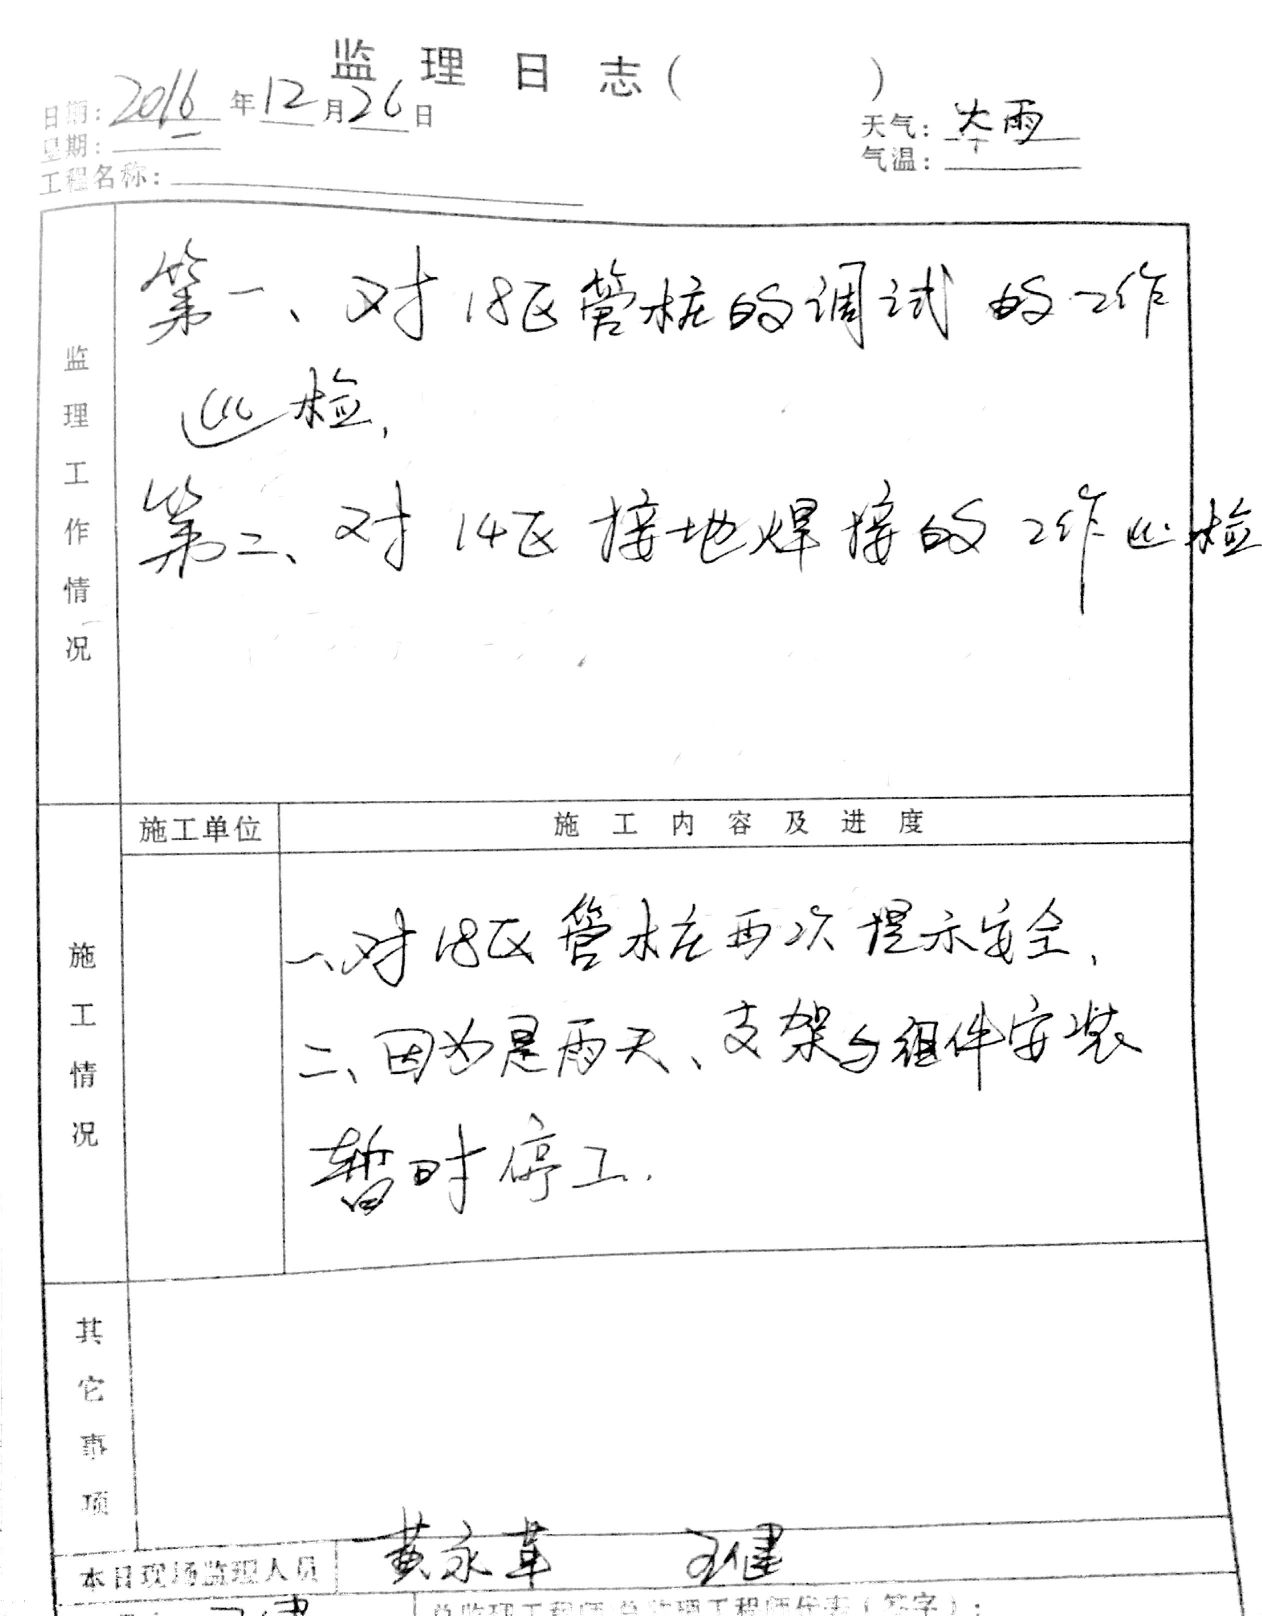 监理日志（ ）
日期：2016年12月26日
天气：大雨
星期：二
气温：
工程名称：
监理工作情况
第一、对18区管桩的调试的工作
巡检.
第二、对14区接地焊接的工作巡检
施工单位 施工内容及进度
施工情况
一、对18区管桩再次提示安全、
二、因为是雨天、支架与组件安装
暂时停工.
其它事项
本日现场监理人员 黄永革 王健
总监理工程师/总监理工程师代表（签字）：